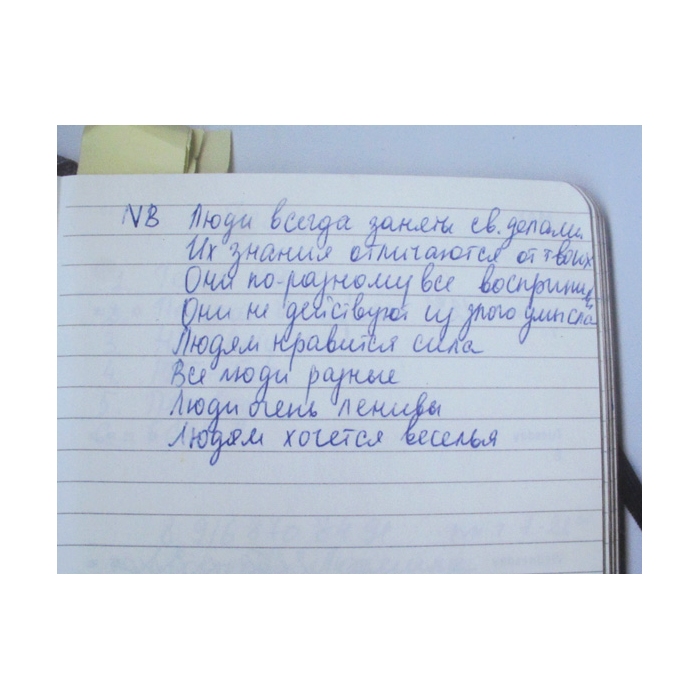 NB Люди всегда заняты св. делами.
Их знания отличаются от твоих
Они по-разному все восприним
Они не действуют из злого умысла
Людям нравится сила
Все люди разные
Люди очень ленивы
Людям хочется веселья